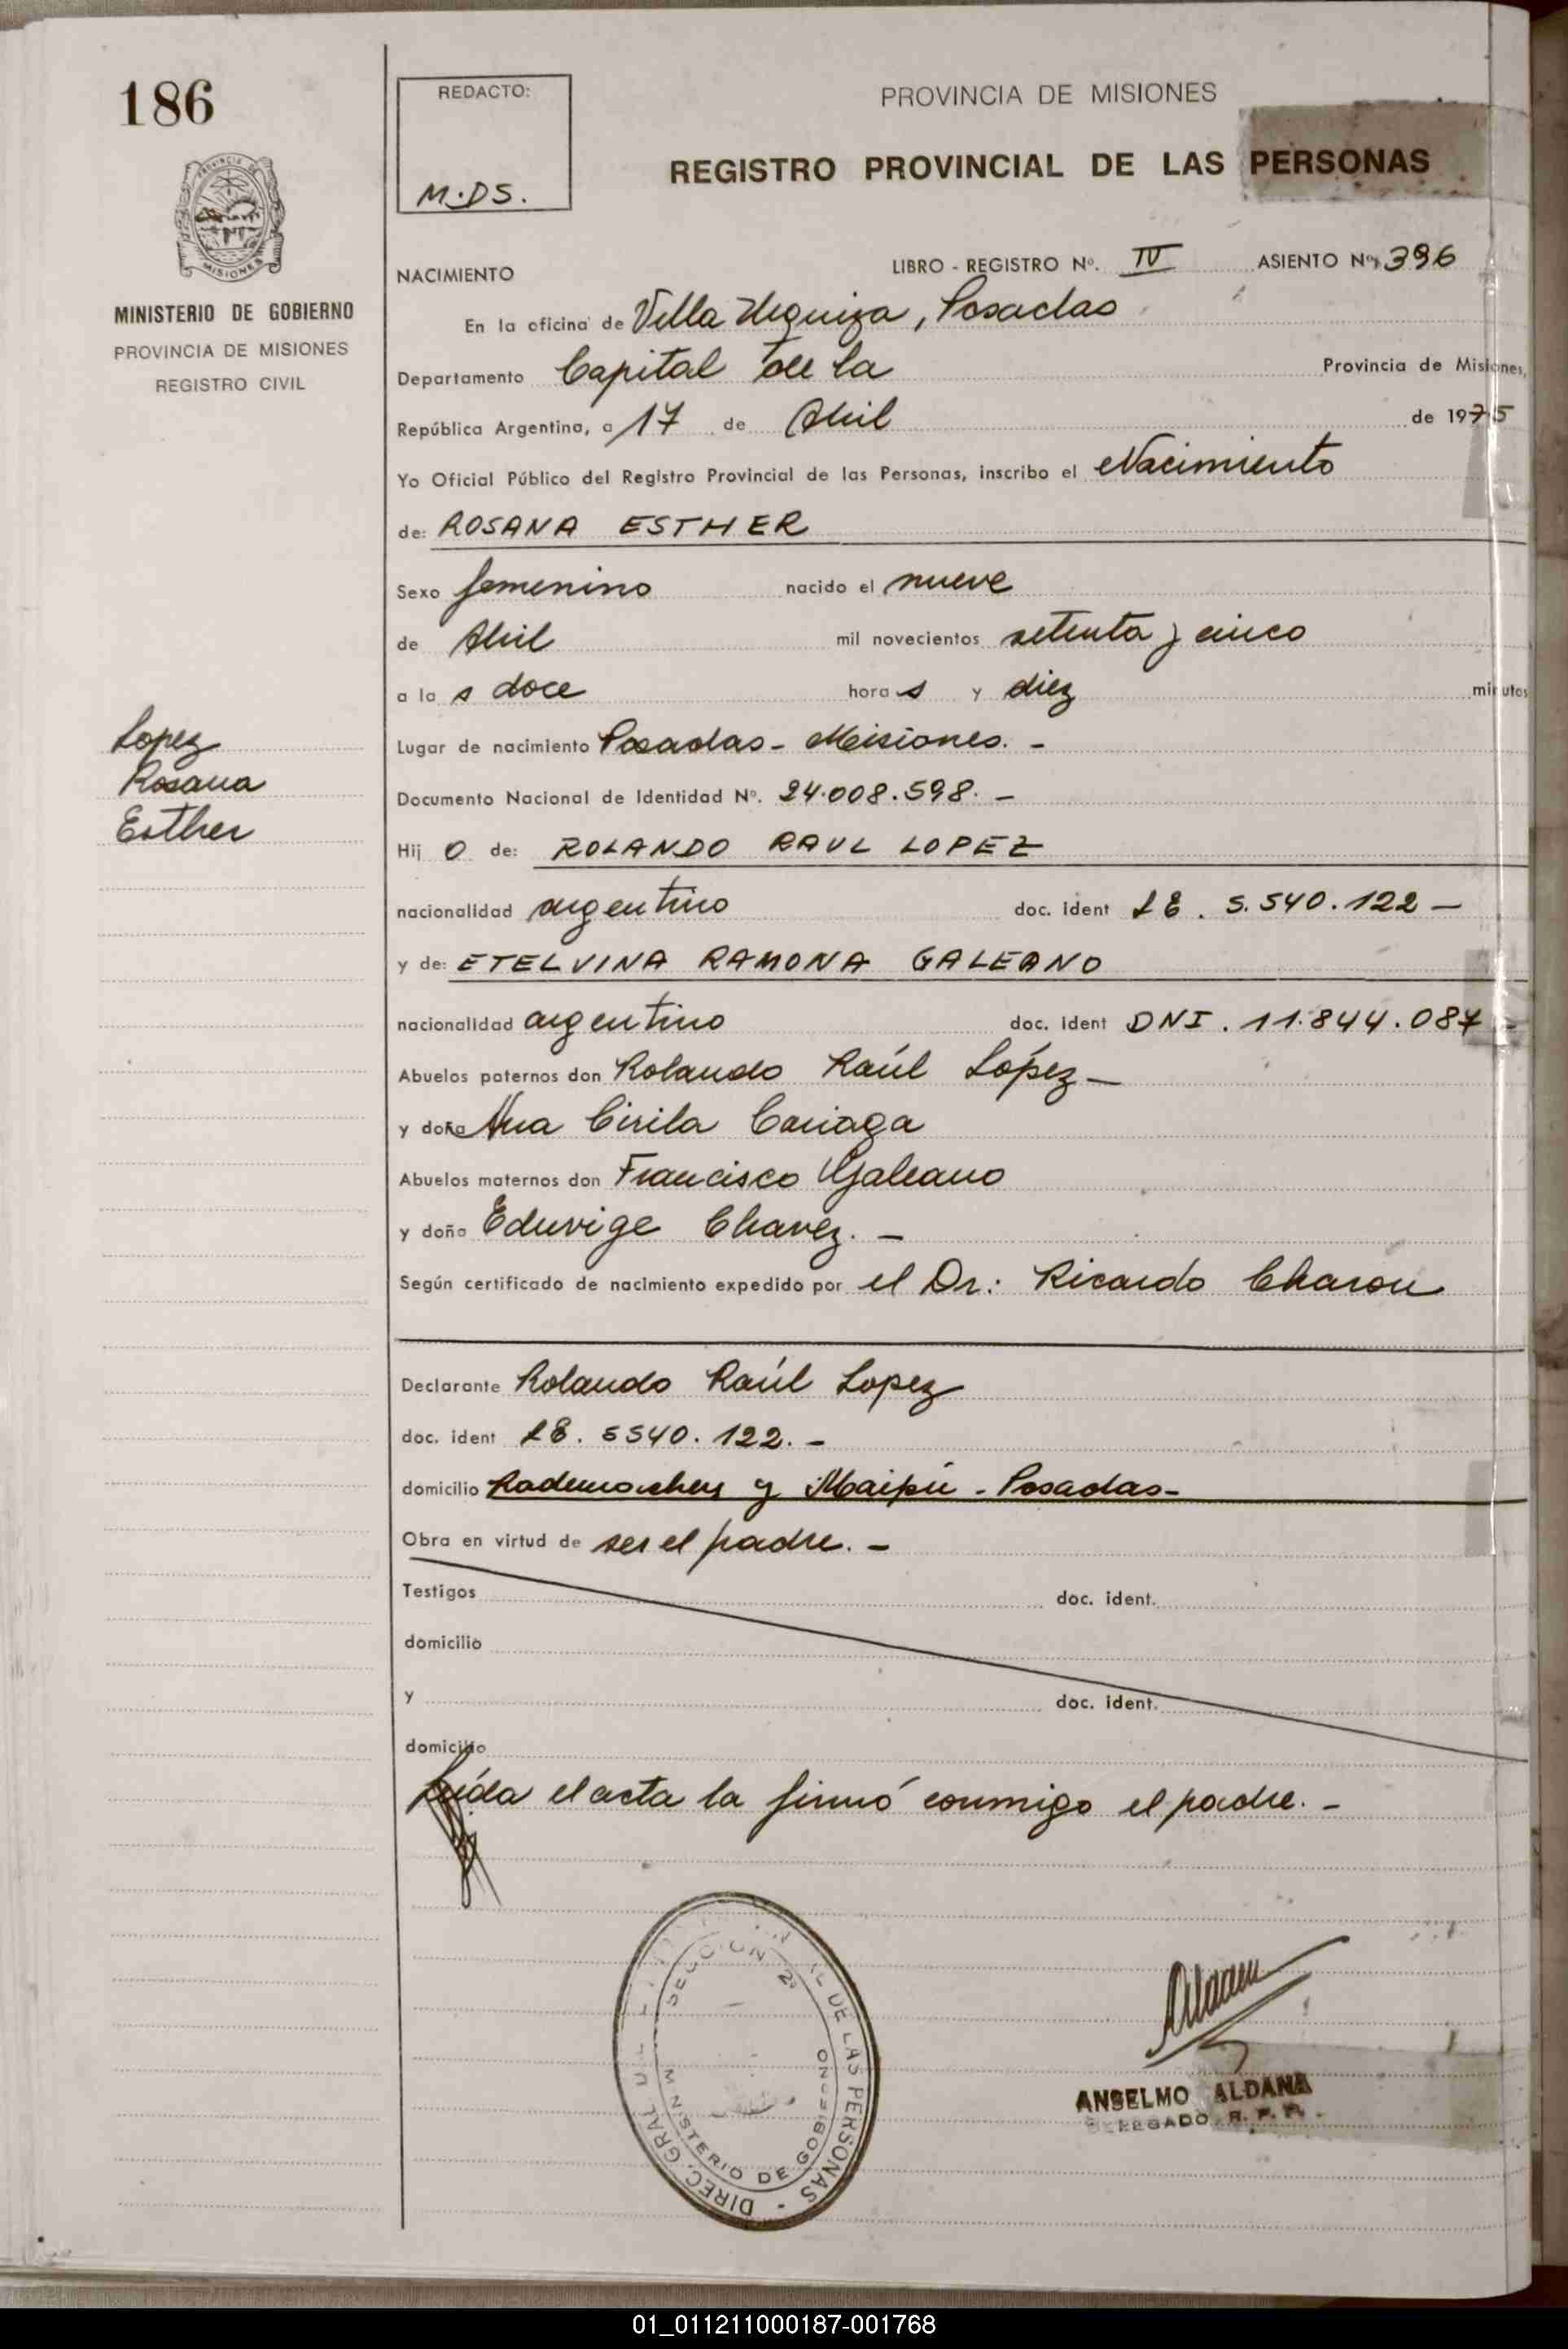 186
MINISTERIO DE GOBIERNO
PROVINCIA DE MISIONES
REGISTRO CIVIL
Lopez
Rosana
Esther
REDACTO:
M.DS.
PROVINCIA DE MISIONES
REGISTRO PROVINCIAL DE LAS PERSONAS
NACIMIENTO LIBRO - REGISTRO Nº. IV ASIENTO Nº 396
En la oficina de Villa Urquiza, Posadas
Departamento Capital de la Provincia de Misiones,
República Argentina, a 17 de Abril de 1975
Yo Oficial Público del Registro Provincial de las Personas, inscribo el Nacimiento
de: ROSANA ESTHER
Sexo femenino nacido el nueve
de Abril mil novecientos setenta y cinco
a la s doce hora s y diez minutos
Lugar de nacimiento Posadas - Misiones. -
Documento Nacional de Identidad Nº. 24.008.598. -
Hij o de: ROLANDO RAUL LOPEZ
nacionalidad argentino doc. ident LE. 5.540.122 -
y de: ETELVINA RAMONA GALEANO
nacionalidad argentino doc. ident DNI. 11.844.087 -
Abuelos paternos don Rolando Raúl López -
y doña Ana Cirila Cariaga
Abuelos maternos don Francisco Galeano
y doña Eduvige Chavez. -
Según certificado de nacimiento expedido por el Dr.: Ricardo Charon
Declarante Rolando Raúl Lopez
doc. ident LE. 5540.122. -
domicilio Rademacher y Maipú - Posadas -
Obra en virtud de ser el padre. -
Testigos doc. ident.
domicilio
y doc. ident.
domicilio
Leída el acta la firmó conmigo el padre. -
SECCION 2ª
MINISTERIO DE GOBIERNO
DIREC. GRAL DE LAS PERSONAS
ANSELMO ALDANA
DELEGADO R. P. P.
01_011211000187-001768